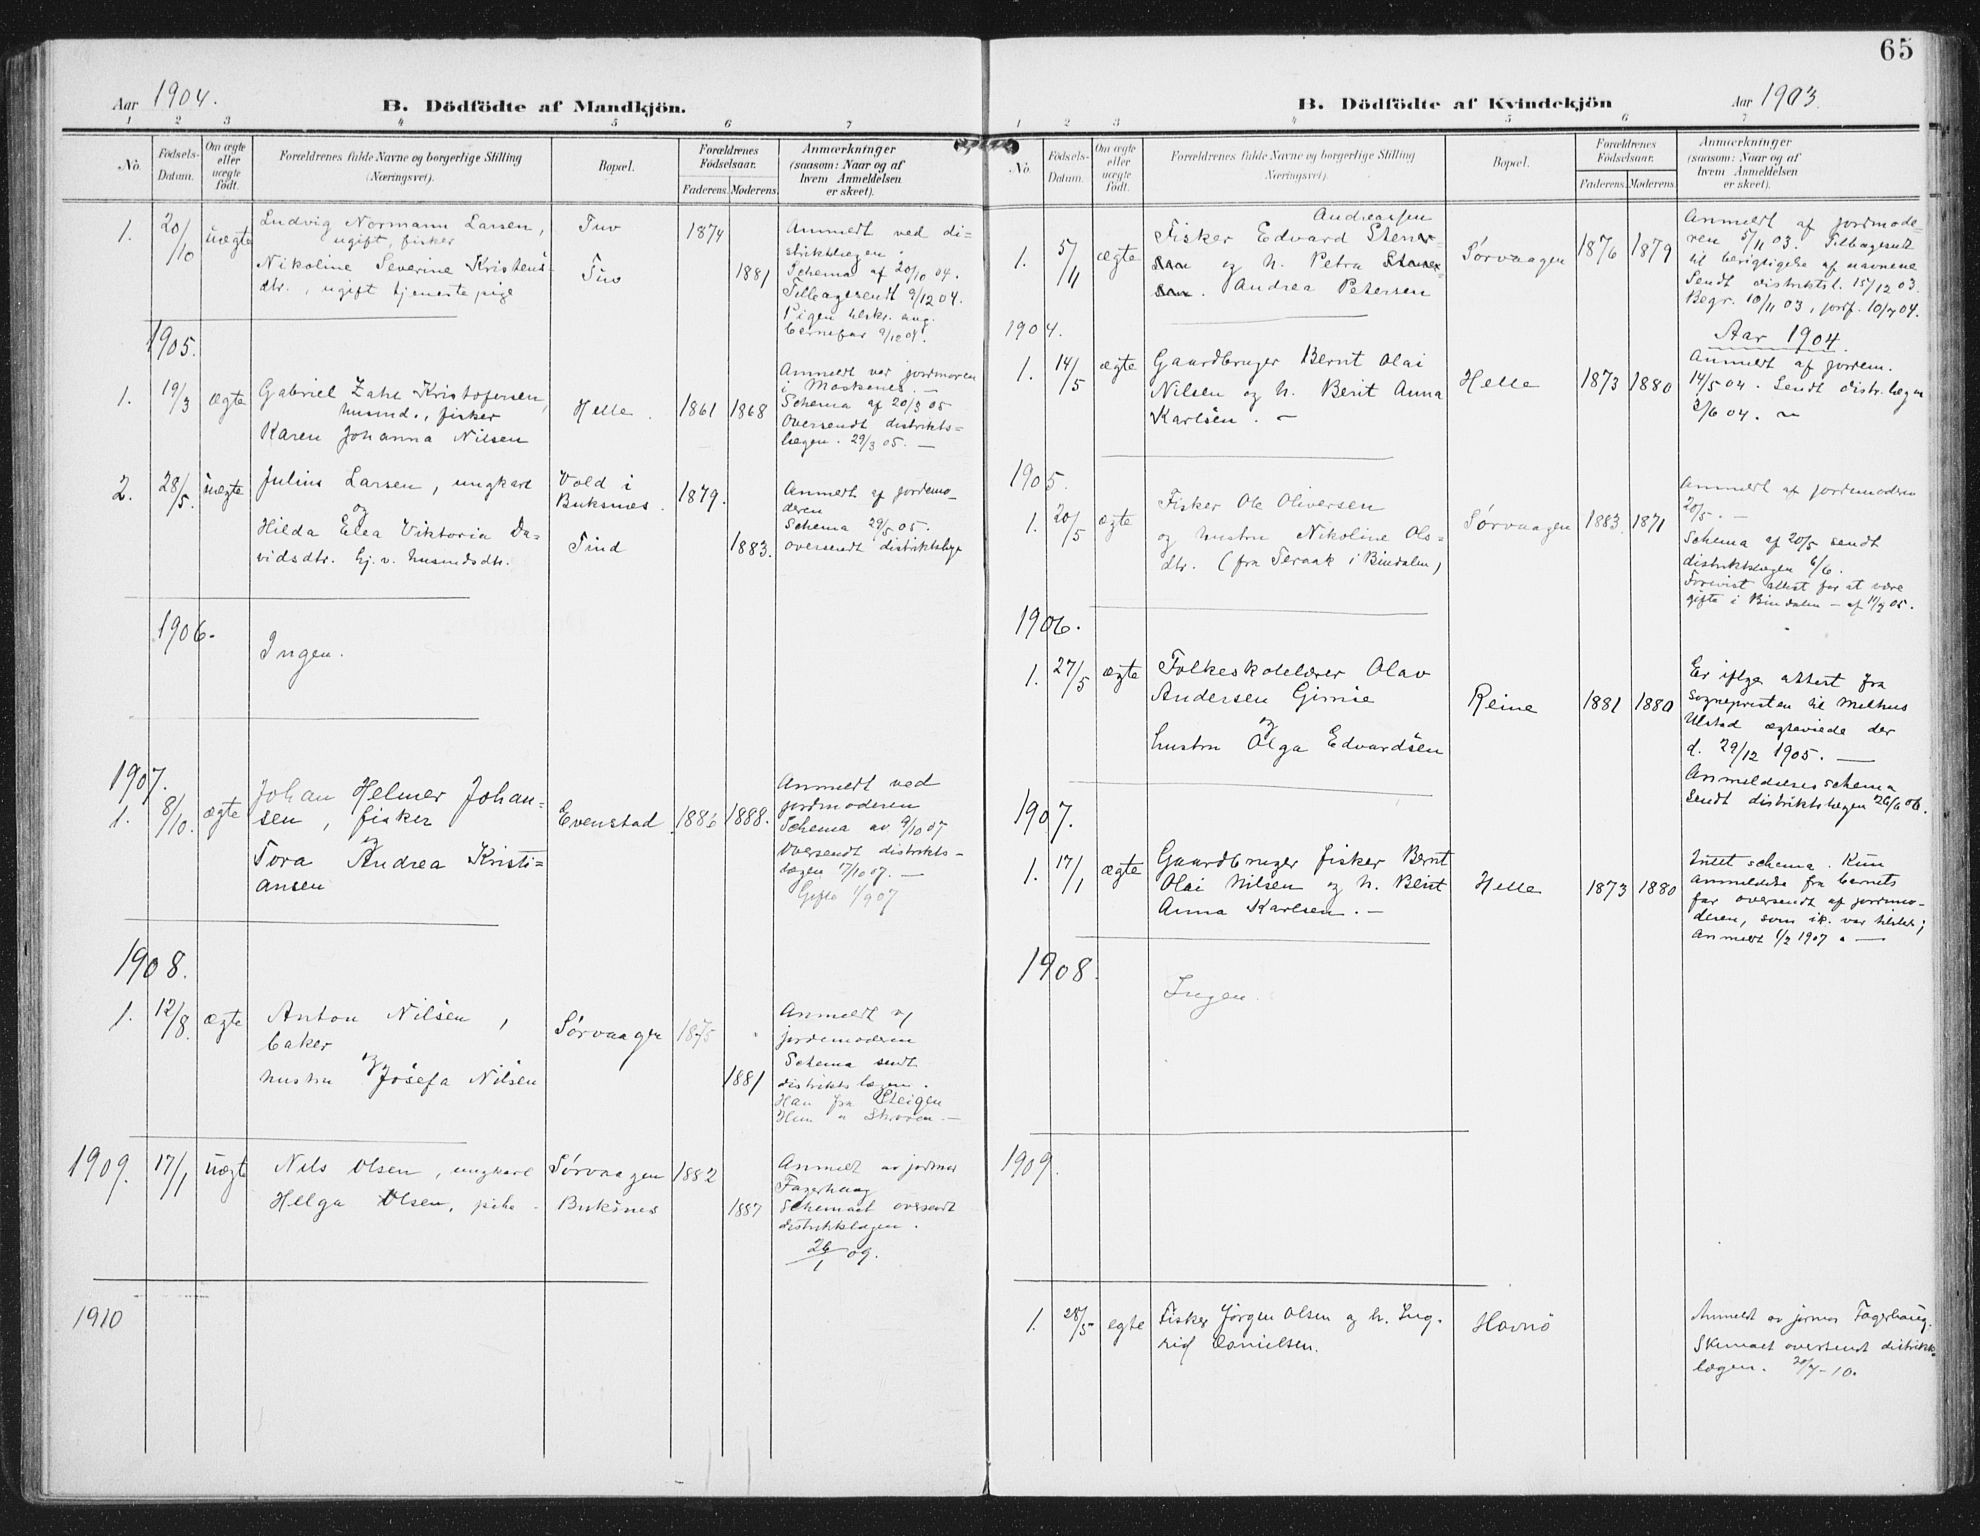 Aar 1904.
B. Dödfödte af Mandkjön.
1 2 3 4 5 6 7
No.
Fødsels-Datum.
Om ægte eller uægte født.
Forældrenes fulde Navne og borgerlige Stilling (Næringsvei).
Bopæl.
Forældrenes Fødselsaar.
Faderens. Moderens.
Anmærkninger (saasom: Naar og af hvem Anmeldelsen er skeet).
1. 20/10 uægte Ludvig Normann Larsen, Tuv 1874
ugift, fisker
Nikoline Severine Kristens- Tuv 1881
dtr., ugift tjenestepige
Anmeldt ved di-
striktslægen.
Schema af 20/10 04.
Tilbagesendt 9/12 04.
Pigen
barnefar 9/12 04.
1905.
1. 19/3 ægte Gabriel Zahl Kristofersen, Helle. 1861 1868
husmd., fisker
Karen Johanna Nilsen
Anmeldt ved jordmoren
i Moskenes. —
Schema af 20/3 05
Oversendt distrikts-
lægen. 29/3 05. —
2. 28/5. uægte Julius Larsen, ungkarl Vold i Buksnes. 1879.
og
Hilda Elea Viktoria Da- Tind 1883.
vidsdtr. hj.v. husmdsdtr.
Anmeldt af jordemo-
deren
Schema 29/5 05.
oversendt distriktslæge
1906.
Ingen.
1907.
1. 8/10. ægte Johan Helmer Johan- Evenstad. 1886 1888.
sen, fisker
og
Tora Andrea Kristi-
ansen
Anmeldt ved
jordmoderen
Schema av 9/10 07
Oversendt distrikts-
lægen 17/10 07. —
Gifte 1/9 07
1908.
1. 12/8. ægte Anton Nilsen, Sørvaagen 1875
baker
og
hustru Josefa Nilsen 1881
Anmeldt af
jordemoderen
Schema sendt
distriktslægen.
Han fra Steigen
Hun " Skroven. —
1909. 17/1 uægt Nils Olsen, ungkarl Sørvaagen 1882
Helga Olsen, pike - Buksnes 1887
Anmeldt av jormor
Fagerhaug
Schemaet oversendt
distriktslægen.
26/1 09.
1910
65
B. Dödfödte af Kvindekjön
Aar 1903.
1 2 3 4 5 6 7
No.
Fødsels-Datum.
Om ægte eller uægte født.
Forældrenes fulde Navne og borgerlige Stilling (Næringsvei).
Bopæl.
Forældrenes Fødselsaar.
Faderens. Moderens.
Anmærkninger (saasom: Naar og af hvem Anmeldelsen er skeet).
Andreassen
1. 5/11 ægte Fisker Edvard Stener- Sørvaagen 1876 1879
sen og h. Petra Stener-
sen. Andrea Petersen
Anmeldt af jordmode-
ren 5/11 03. Tilbagesendt
til berigtigelse af navnene
Sendt distriktsl. 15/12 03.
Begr. 10/11 03, jordf. 10/7 04.
1904.
Aar 1904.
1. 14/5 ægte Gaardbruger Bernt Olai Helle 1873 1880
Nilsen og h. Berit Anna
Karlsen. —
Anmeldt af jordem.
14/5 04. Sendt distr.lægen
3/6 04. —
1905.
1. 20/5 ægte Fisker Ole Oliversen Sørvaagen 1883. 1871
og hustru Nikoline Ols-
dtr. (fra Teraak i Bindalen)
Anmeldt af jordemoderen
20/5. —
Schema af 20/5 sendt
distriktslægen 6/6.
Forevist attest for at være
gifte i Bindalen — af 11/7 05.
1906.
1. 27/5 ægte Folkeskolelærer Olav Reine 1881 1880
Andersen Gimse
og
hustru Olga Edvardsen
Er ifølge attest fra
sognepresten til Melhus
ægteviede der
d. 29/12 1905. —
Anmeldelsesschema
sendt distriktslægen 26/6 06.
1907.
1. 17/1 ægte Gaardbruger fisker Bernt Helle 1873 1880
Olai Nilsen og h. Berit
Anna Karlsen. —
Intet schema. Kun
anmeldelse fra barnets
far oversendt af jordmo-
deren, som ik. var tilstede;
Anmeldt 1/2 1907. —
1908.
Ingen.
1909.
1. 28/5 egte Fisker Jørgen Olsen og h. Ing- Havnö
rid Danielsen.
Anmeldt av jormor Fagerhaug.
Skemaet oversendt distrikts-
lægen. 20/7 - 10.